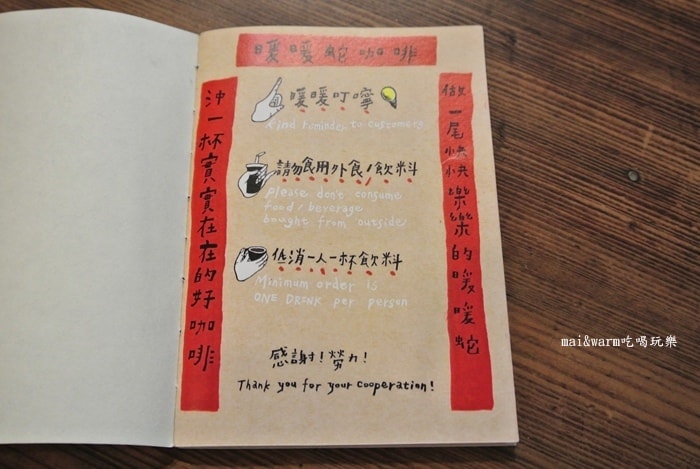 暖暖蛇咖啡
做一尾快快樂樂的暖暖蛇
沖一杯實實在在的好咖啡
暖暖叮嚀
kind reminder to customers
請勿食用外食/飲料
please don't consume
food/beverage
bought from outside
低消一人一杯飲料
Minimum order is
ONE DRINK per person
感謝!勞力!
Thank you for your cooperation!
mai&warm吃喝玩樂